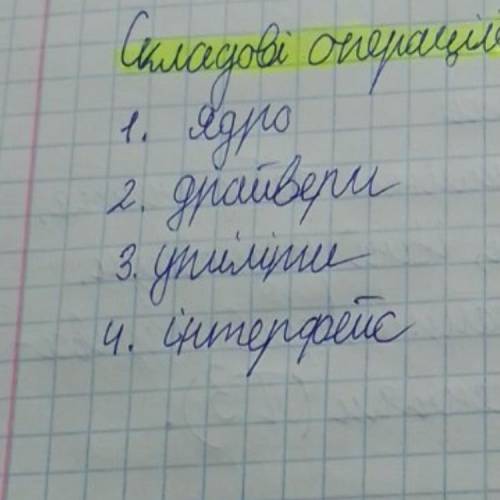 Складові операційн
1. ядро
2. драйвери
3. утиліти
4. інтерфейс